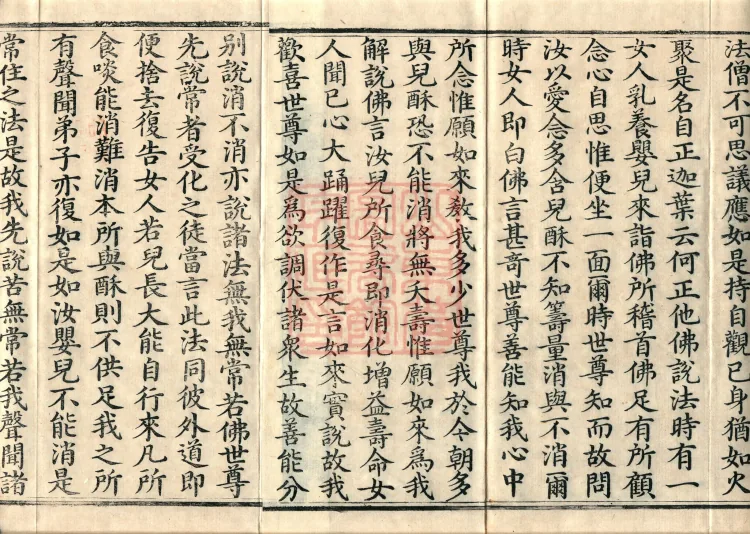 法僧不可思議應如是持自觀已身猶如火
聚是名自正迦葉云何正他佛說法時有一
女人乳養嬰兒來詣佛所稽首佛足有所顧
念心自思惟便坐一面爾時世尊知而故問
汝以愛念多含兒酥不知籌量消與不消爾
時女人即白佛言甚竒世尊善能知我心中
所念惟願如來教我多少世尊我於今朝多
與兒酥恐不能消將無夭壽惟願如來爲我
解說佛言汝兒所食尋即消化增益壽命女
人聞已心大踊躍復作是言如來實說故我
歡喜世尊如是爲欲調伏諸衆生故善能分
别說消不消亦說諸法無我無常若佛世尊
先說常者受化之徒當言此法同彼外道即
便捨去復告女人若兒長大能自行來凡所
食啖能消難消本所與酥則不供足我之所
有聲聞弟子亦復如是如汝嬰兒不能消是
常住之法是故我先說苦無常若我聲聞諸